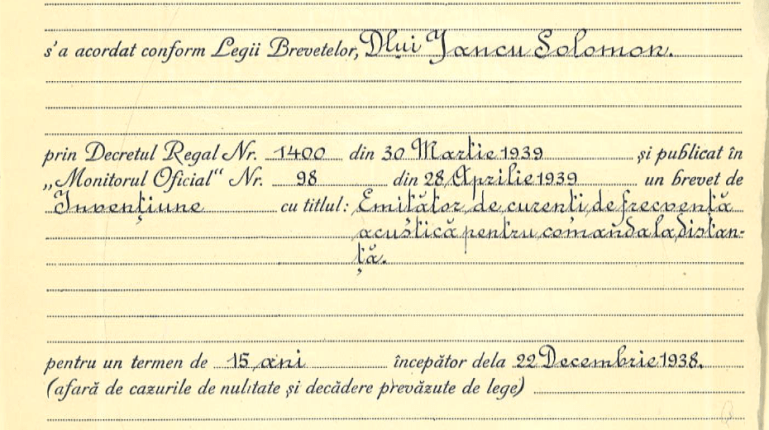 s'a acordat conform Legii Brevetelor, Dlui Iancu Solomon.
prin Decretul Regal Nr. 1400 din 30 Martie 1939 și publicat în
„Monitorul Oficial“ Nr. 98 din 28 Aprilie 1939 un brevet de
Invențiune cu titlul: Emitător de curenti de frecvență
acustică pentru comanda la distan-
ță.
pentru un termen de 15 ani începător dela 22 Decembrie 1938.
(afară de cazurile de nulitate și decădere prevăzute de lege)